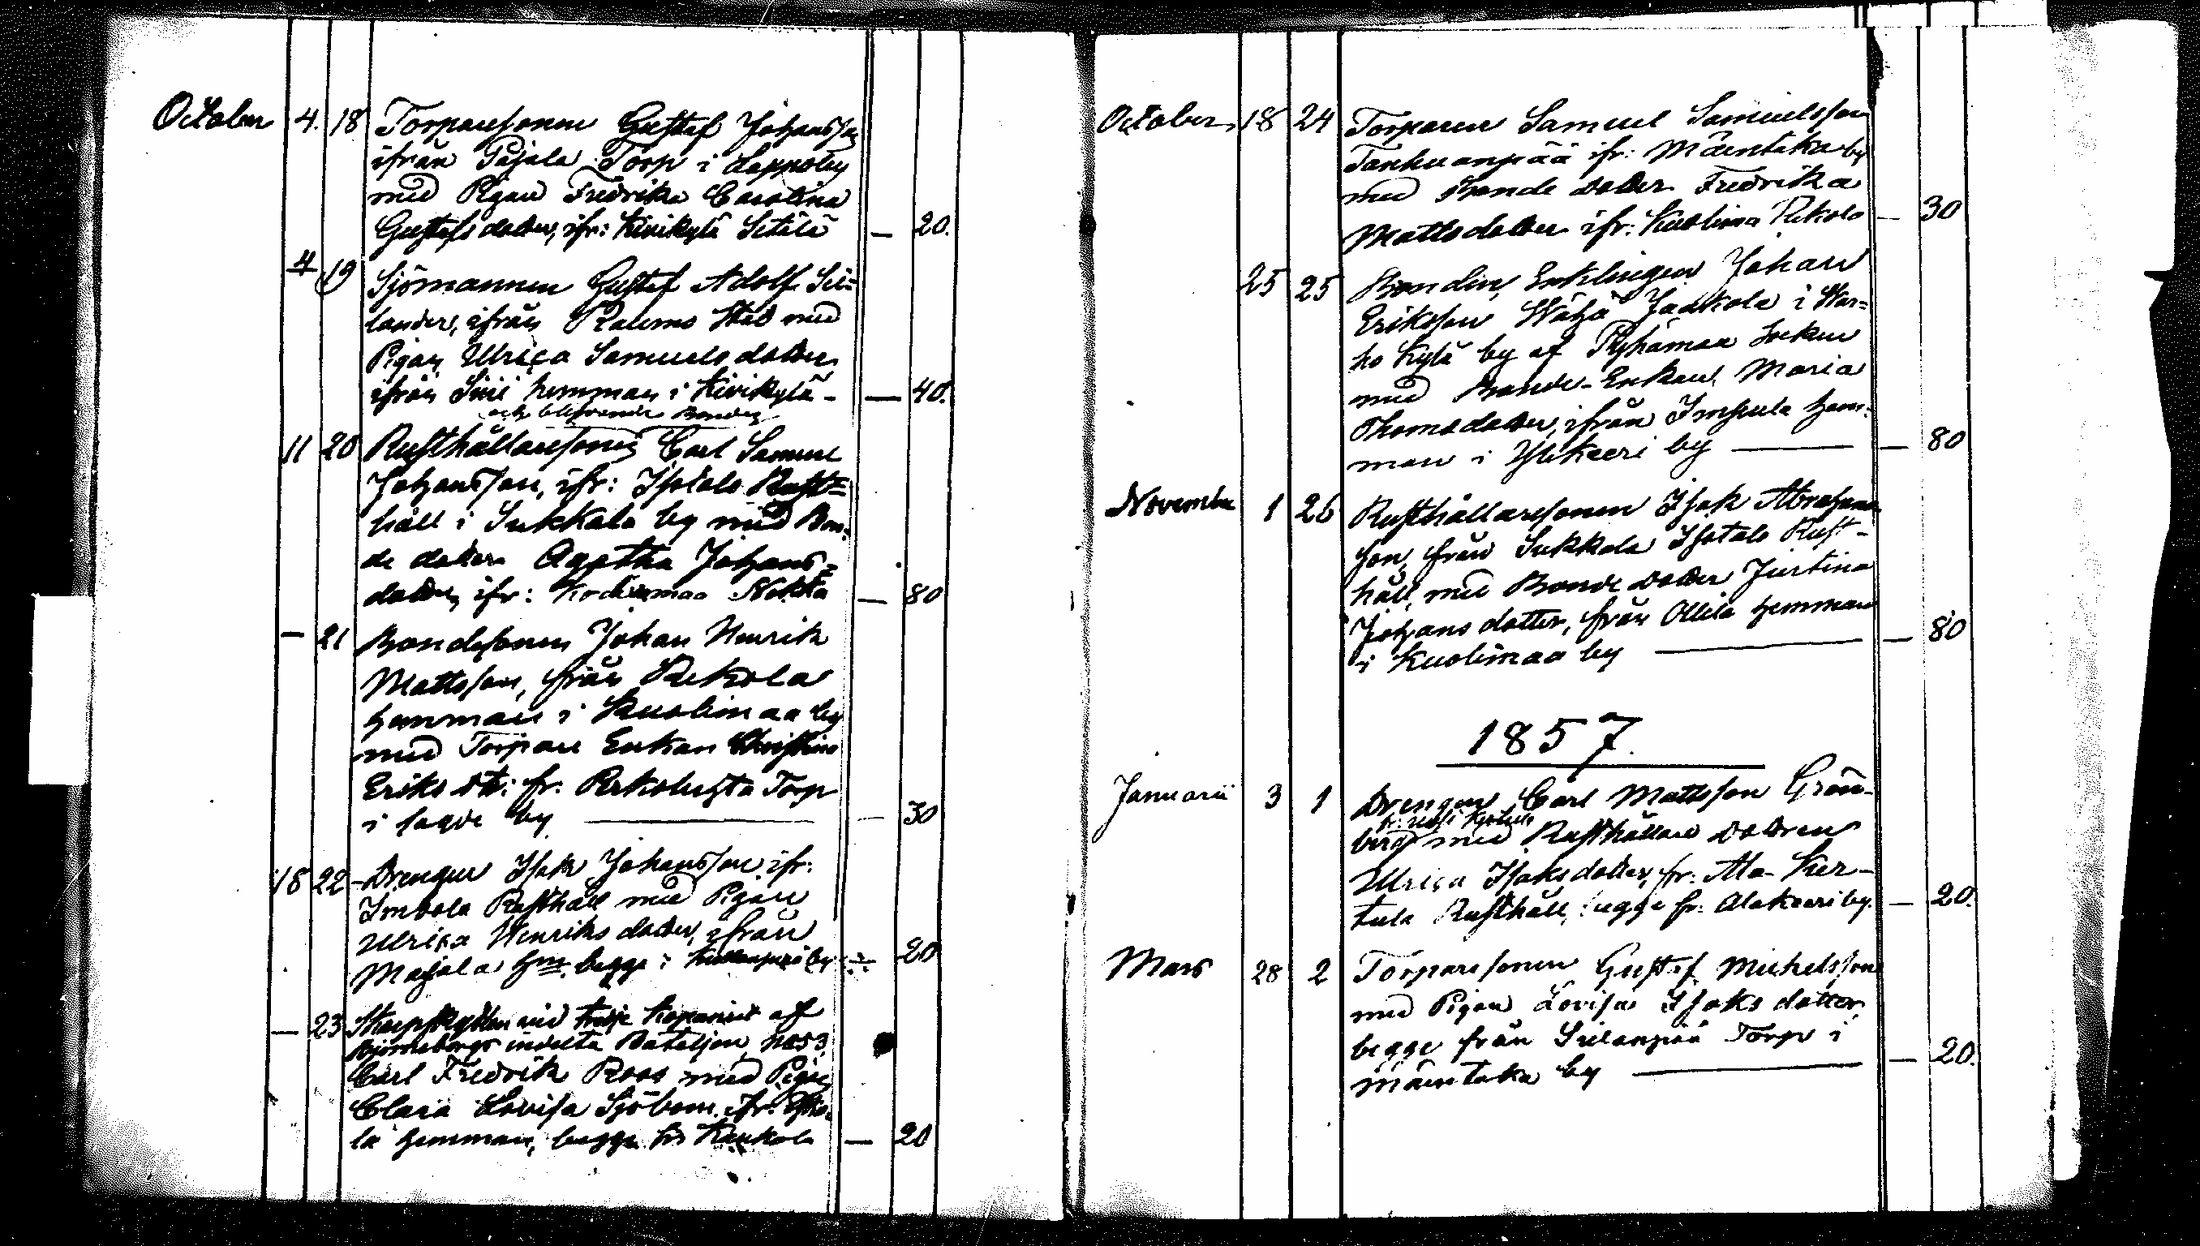 October 4. 18 Torparesonen Gustaf Johansson
ifrån Pajala Torp i Lappoby
med Pigan Fredrika Carolina
Gustafsdotter, ifr: Kivikylä Setälä — 20.
4 19 Sjömannen Gustaf Adolf Se-
lander, ifrån Raumo Stad med
Pigan Ulrica Samuelsdotter
ifrån Sini hemman i Kivikylä - — 40.
och blifvande Bonden
11 20 Rusthållaresonen Carl Samuel
Johansson, ifr: Isotalo Rust=
håll i Sukkala by med Bon-
de dotter Agatha Johans=
dotter, ifr: Kodixmaa Nokka — 80
— 21 Bondesonen Johan Henrik
Mattsson, från Rekola
hemman i Kuolimaa by
med Torpare Enkan Christina
Eriks dtr: fr. Torp
i sagde by — 30
18 22 Drengen Isak Johansson ifr:
Imbola Rusthåll med Pigan
Ulrica Henriks dotter, ifrån
Majala Hmn, begge i by — 20
— 23 Skarpskytten vid tredje Kompaniet af
Björneborgs indelta Bataljon, No 53
Carl Fredrik Roos med Pigan
Clara Lovisa Sjöbom ifr.
la hemman, begge Kaukola — 20
October 18 24 Torparen Samuel Samuelsson
Tankuanpää ifr: Mäentaka by
med Bonde dotter Fredrika
Mattsdotter ifr: Kuolimaa Rekola — 30
25 25 Bonden, Enklingen Johan
Eriksson Wähä Jaakola i War=
ho Kylä by af Pyhämaa Socken
med Bonde-Enkan, Maria
Thomsdotter, ifrån Impula hem-
man i Ylikeeri by — 80
November 1 26 Rusthållaresonen Isak Abrahams
son, från Sukkala Isotalo Rust-
håll, med Bonde dotter Justina
Johans dotter, från Ollila hemman
i Kuolimaa by — 80
1857.
Januarii 3 1 Drengen Carl Mattsson Grön-
berg med Rusthållare dottren
Ulrica Isaksdotter, fr: Ala-Ker-
tula Rusthåll, begge fr. Alakeeri by. — 20.
Mars 28 2 Torparesonen Gustaf Michelsson
med Pigan Lovisa Isaks dotter,
begge från Sielanpää Torp i
Mäentaka by — 20.